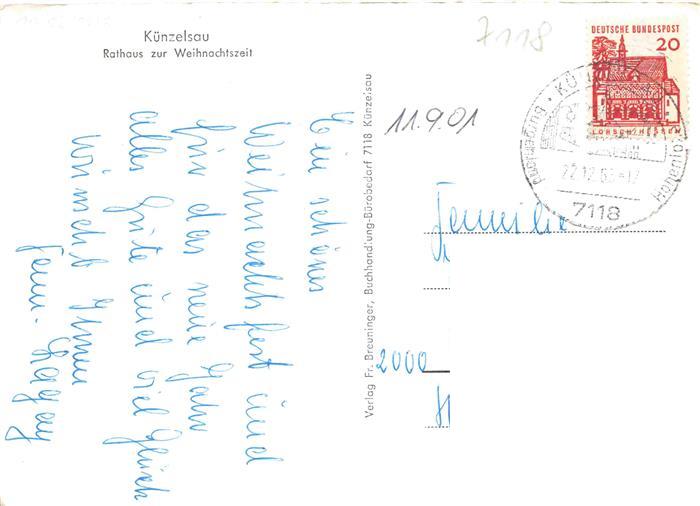 Künzelsau
Rathaus zur Weihnachtszeit
7118
DEUTSCHE BUNDESPOST
20
LORSCH/HESSEN
22.12.6
7118
11.9.01
Verlag Fr. Breuninger, Buchhandlung-Bürobedarf 7118 Künzelsau
Ein schönes
Weihnachtsfest und
für das neue Jahr
alles Gute und viel Glück
wünscht Ihnen
Fam.
Familie
2000